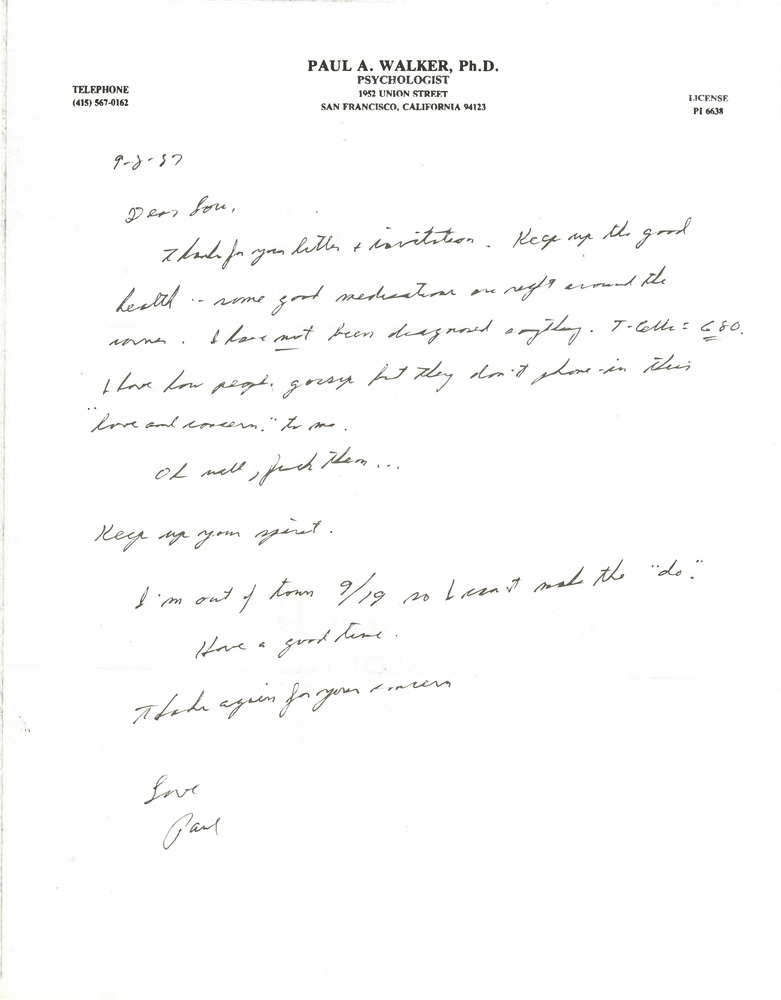 PAUL A. WALKER, Ph.D.
PSYCHOLOGIST
1952 UNION STREET
SAN FRANCISCO, CALIFORNIA 94123
TELEPHONE
(415) 567-0162
LICENSE
PI 6638
9-8-87
Dear Lou,
Thanks for your letter + invitation. Keep up the good
health -- some good medications are right around the
corner. I have not been diagnosed anything. T-Cells = 680.
I love how people gossip but they don't phone-in this
"love and concern." to me.
Oh well, fuck them...
Keep up your spirit.
I'm out of town 9/19 so I can't make the "do".
Have a good time.
Thanks again for your concern
Love
Paul